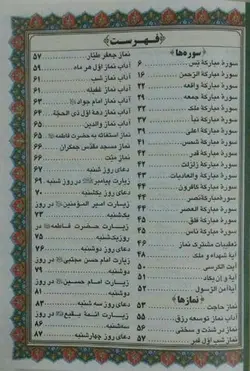 ﴿فهرست﴾
﴿سوره‌ها﴾
سورهٔ مبارکهٔ یس ۶
سورهٔ مبارکهٔ الرحمن ۱۶
سورهٔ مبارکهٔ واقعه ۲۲
سورهٔ مبارکهٔ جمعه
سورهٔ مبارکهٔ ملک ۳۲
سورهٔ مبارکهٔ نبأ ۳۷
سورهٔ مبارکهٔ اعلی ۳۹
سورهٔ مبارکهٔ شمس ۴۱
سورهٔ مبارکهٔ قدر
سورهٔ مبارکهٔ زلزله
سورهٔ مبارکهٔ والعادیات ۴۳
سورهٔ مبارکهٔ کافرون ۴۴
سورهٔ مبارکهٔ نصر ۴۴
سورهٔ مبارکهٔ
سورهٔ مبارکهٔ فلق ۴۵
سورهٔ مبارکهٔ ناس ۴۵
تعقیبات مشترک نماز ۴۶
آیهٔ شهداء و ملک ۴۸
آیة الکرسی ۵۰
آیهٔ و إن یکاد ۵۱
آیهٔ آمن الرسول ۵۲
﴿نمازها﴾
نماز حاجت ۵۳
آداب نماز توسعه رزق ۵۵
نماز در شدت و سختی ۵۶
نماز شب اول قبر ۵۷
نماز جعفر طیّار ۵۷
آداب نماز اول هر ماه ۵۹
آداب نماز شب ۶۱
آداب نماز غفیله ۶۱
آداب نماز امام جواد ۶۳
آداب نماز دههٔ اول ذی الحجّه ۶۴
آداب نماز والدین ۶۵
نماز استغاثه به حضرت فاطمه ۶۵
نماز مسجد مقدّس جمکران ۶۶
نماز میّت ۶۶
دعای روز شنبه ۶۷
زیارت پیامبر در روز شنبه ۶۹
دعای روز یکشنبه ۷۰
زیارت امیر المؤمنین در روز
یکشنبه ۷۳
زیارت حضرت فاطمه در
روز یکشنبه ۷۵
دعای روز دوشنبه ۷۶
زیارت امام حسن مجتبی
دوشنبه ۷۹
زیارت امام حسین در روز
دوشنبه
دعای روز سه شنبه ۸۳
زیارت ائمهٔ بقیع در روز
سه‌شنبه ۸۶
دعای روز چهارشنبه ۸۷